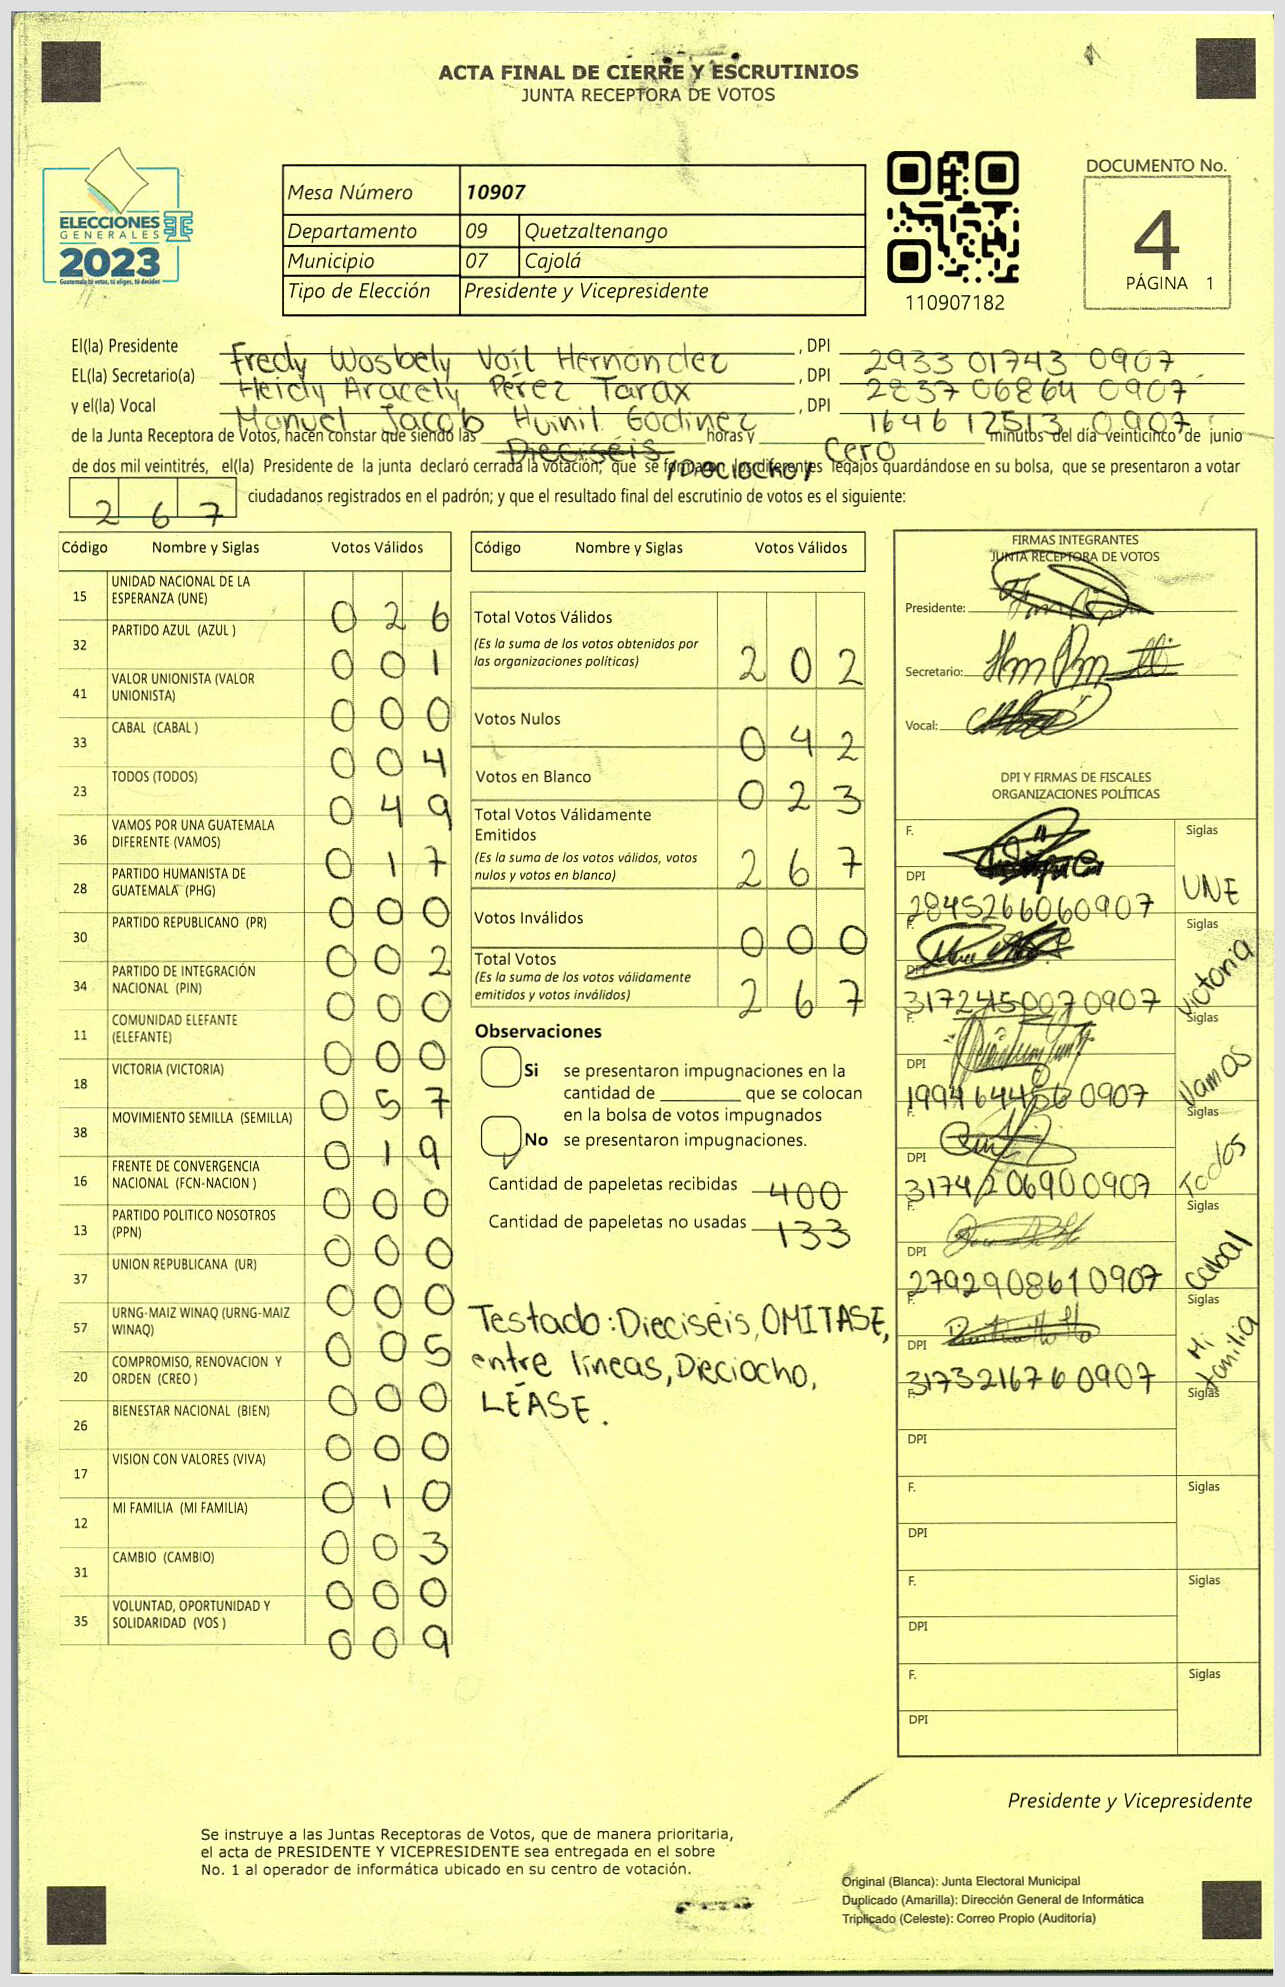 ACTA FINAL DE CIERRE Y ESCRUTINIOS
JUNTA RECEPTORA DE VOTOS
ELECCIONES
GENERALES
2023
Guatemala tú votas, tú eliges, tú decides
Mesa Número 10907
Departamento 09 Quetzaltenango
Municipio 07 Cajolá
Tipo de Elección Presidente y Vicepresidente
110907182
DOCUMENTO No.
4
PÁGINA 1
El(la) Presidente Fredy Wosbely Vail Hernández , DPI 2933 01743 0907
EL(la) Secretario(a) Heidy Aracely Pérez Tarax , DPI 2837 06864 0907
y el(la) Vocal Manuel Jacob Huinil Godinez , DPI 1646 12513 0907
de la Junta Receptora de Votos, hacen constar que siendo las Dieciséis horas y Cero minutos del día veinticinco de junio
/Dieciocho/
de dos mil veintitrés, el(la) Presidente de la junta declaró cerrada la votación; que se formaron los diferentes legajos guardándose en su bolsa, que se presentaron a votar
267 ciudadanos registrados en el padrón; y que el resultado final del escrutinio de votos es el siguiente:
Código Nombre y Siglas Votos Válidos
15 UNIDAD NACIONAL DE LA ESPERANZA (UNE) 026
32 PARTIDO AZUL (AZUL ) 001
41 VALOR UNIONISTA (VALOR UNIONISTA) 000
33 CABAL (CABAL ) 004
23 TODOS (TODOS) 049
36 VAMOS POR UNA GUATEMALA DIFERENTE (VAMOS) 017
28 PARTIDO HUMANISTA DE GUATEMALA (PHG) 000
30 PARTIDO REPUBLICANO (PR) 002
34 PARTIDO DE INTEGRACIÓN NACIONAL (PIN) 000
11 COMUNIDAD ELEFANTE (ELEFANTE) 000
18 VICTORIA (VICTORIA) 057
38 MOVIMIENTO SEMILLA (SEMILLA) 019
16 FRENTE DE CONVERGENCIA NACIONAL (FCN-NACION ) 000
13 PARTIDO POLITICO NOSOTROS (PPN) 000
37 UNION REPUBLICANA (UR) 000
57 URNG-MAIZ WINAQ (URNG-MAIZ WINAQ) 005
20 COMPROMISO, RENOVACION Y ORDEN (CREO ) 000
26 BIENESTAR NACIONAL (BIEN) 000
17 VISION CON VALORES (VIVA) 010
12 MI FAMILIA (MI FAMILIA) 003
31 CAMBIO (CAMBIO) 000
35 VOLUNTAD, OPORTUNIDAD Y SOLIDARIDAD (VOS ) 009
Código Nombre y Siglas Votos Válidos
Total Votos Válidos
(Es la suma de los votos obtenidos por
las organizaciones políticas) 202
Votos Nulos 042
Votos en Blanco 023
Total Votos Válidamente
Emitidos
(Es la suma de los votos válidos, votos
nulos y votos en blanco) 267
Votos Inválidos 000
Total Votos
(Es la suma de los votos válidamente
emitidos y votos inválidos) 267
Observaciones
Si se presentaron impugnaciones en la
cantidad de ________ que se colocan
en la bolsa de votos impugnados
No se presentaron impugnaciones.
Cantidad de papeletas recibidas 400
Cantidad de papeletas no usadas 133
Testado: Dieciséis, OMITASE,
entre líneas, Dieciocho,
LÉASE.
FIRMAS INTEGRANTES
JUNTA RECEPTORA DE VOTOS
Presidente:
Secretario:
Vocal:
DPI Y FIRMAS DE FISCALES
ORGANIZACIONES POLÍTICAS
F. Siglas
DPI 2845266060907 UNE
F. Siglas
DPI 3172450070907 Victoria
F. Siglas
DPI Vamos
F. Siglas
DPI Todos
F. Siglas
DPI 2792908610907 Cabal
F. Siglas
DPI 3173216760907 Mi familia
F. Siglas
DPI
F. Siglas
DPI
F. Siglas
DPI
F. Siglas
DPI
Presidente y Vicepresidente
Se instruye a las Juntas Receptoras de Votos, que de manera prioritaria,
el acta de PRESIDENTE Y VICEPRESIDENTE sea entregada en el sobre
No. 1 al operador de informática ubicado en su centro de votación.
Original (Blanca): Junta Electoral Municipal
Duplicado (Amarilla): Dirección General de Informática
Triplicado (Celeste): Correo Propio (Auditoría)